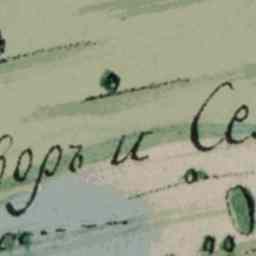 воръ и Се